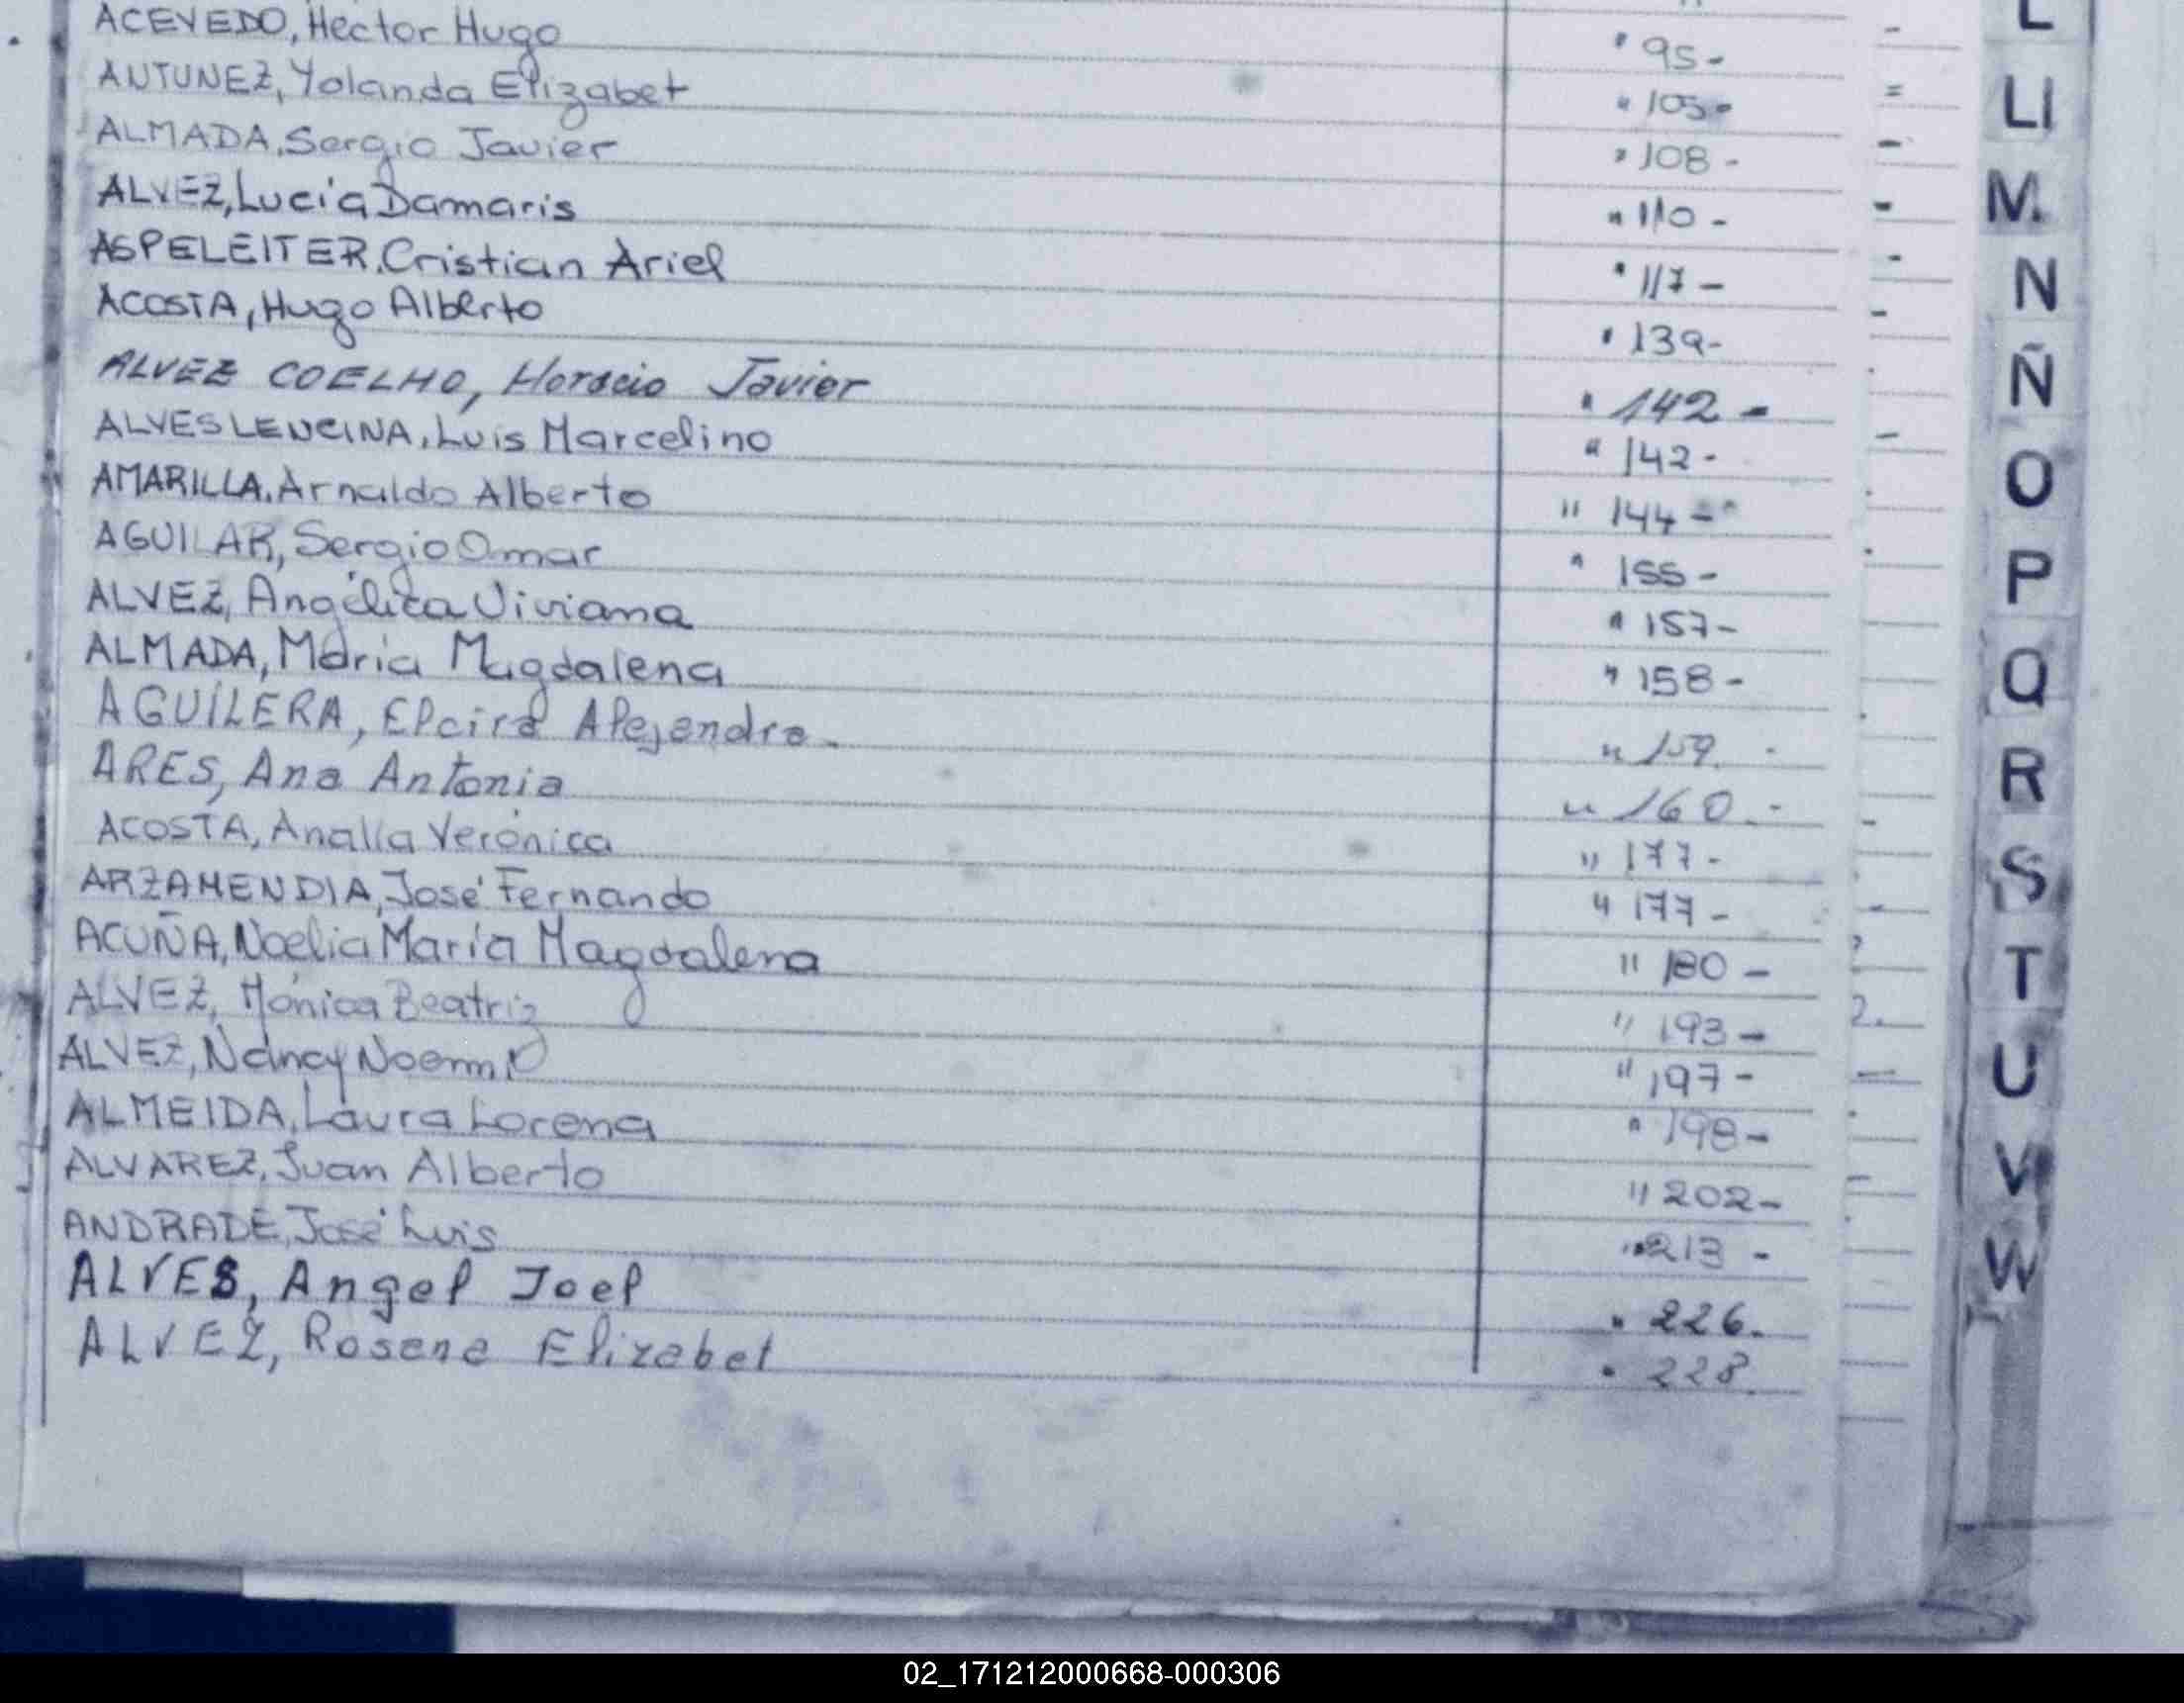 ACEVEDO, Hector Hugo " 95-
ANTUNEZ, Yolanda Elizabet " 105-
ALMADA, Sergio Javier " 108-
ALVEZ, Lucía Damaris " 110-
ASPELEITER, Cristian Ariel " 117-
ACOSTA, Hugo Alberto " 139-
ALVEZ COELHO, Horacio Javier " 142-
ALVES LENCINA, Luis Marcelino " 142-
AMARILLA, Arnaldo Alberto " 144-
AGUILAR, Sergio Omar " 155-
ALVEZ, Angélica Viviana " 157-
ALMADA, María Magdalena " 158-
AGUILERA, Elcira Alejandra. " 159.-
ARES, Ana Antonia " 160.-
ACOSTA, Analía Verónica " 177-
ARZAMENDIA, José Fernando " 177-
ACUÑA, Noelia María Magdalena " 180-
ALVEZ, Mónica Beatriz " 193-
ALVEZ, Nancy Noemí " 197-
ALMEIDA, Laura Lorena " 198-
ALVAREZ, Juan Alberto " 202-
ANDRADE, José Luis " 213-
ALVES, Angel Joel " 226.
ALVEZ, Rosana Elizabet " 228.
L
LI
M
N
Ñ
O
P
Q
R
S
T
U
V
W
02_171212000668-000306